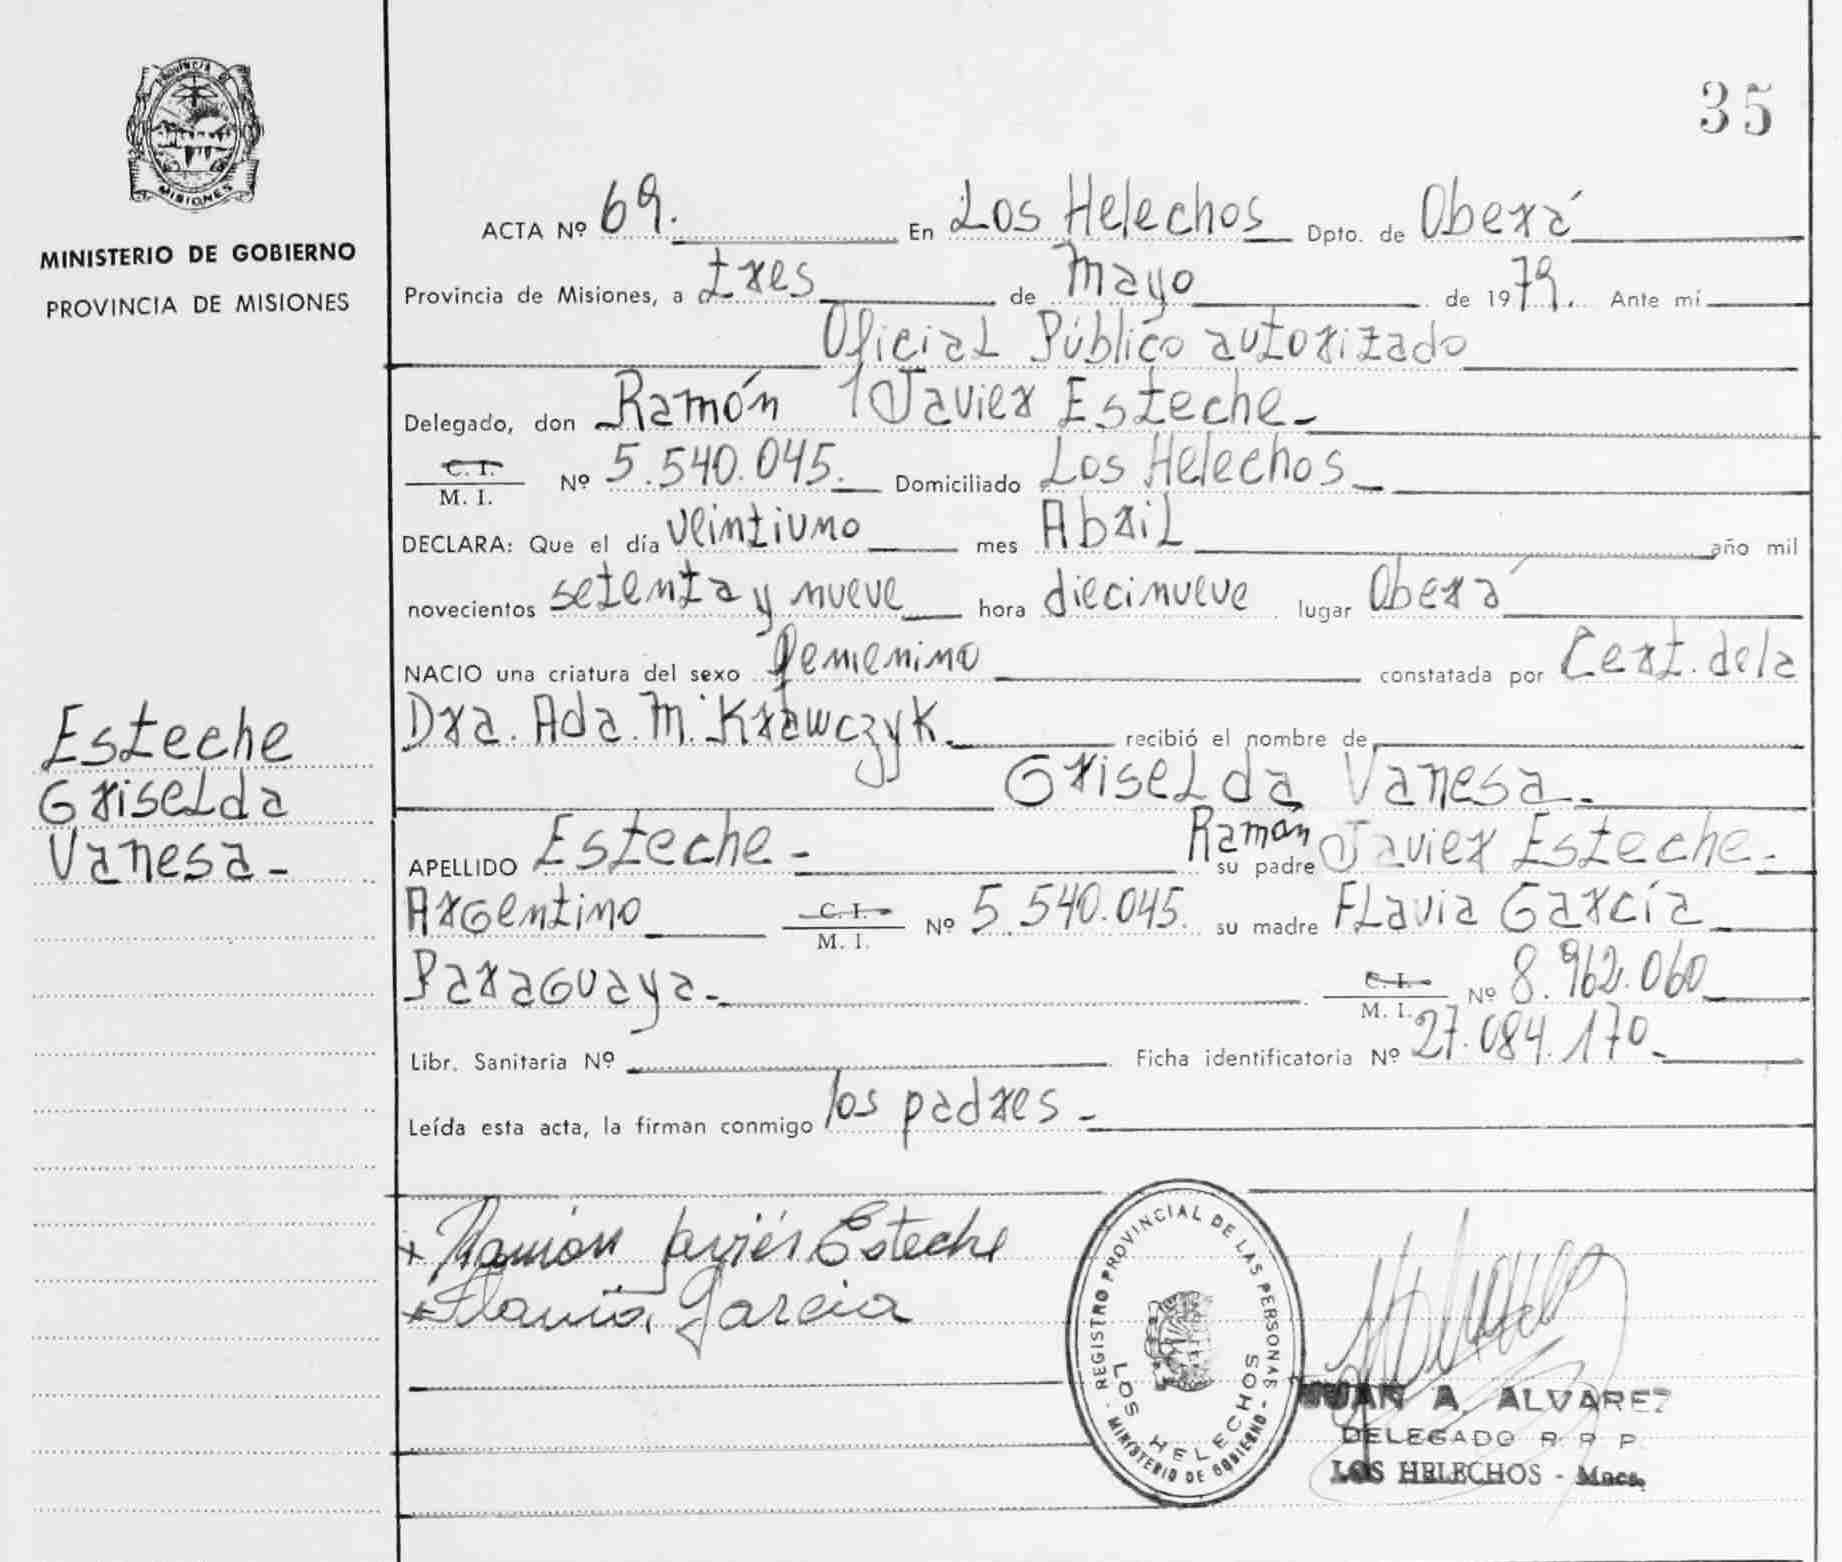 PROVINCIA DE
MISIONES
MINISTERIO DE GOBIERNO
PROVINCIA DE MISIONES
Esteche
Griselda
Vanesa-
35
ACTA Nº 69. En Los Helechos Dpto. de Oberá
Provincia de Misiones, a tres de Mayo de 1979. Ante mí
Oficial Público autorizado
Delegado, don Ramón Javier Esteche-
C. I.
M. I. Nº 5.540.045. Domiciliado Los Helechos-
DECLARA: Que el día veintiuno mes Abril año mil
novecientos setenta y nueve hora diecinueve lugar Oberá
NACIO una criatura del sexo femenino constatada por Cert. de la
Dra. Ada. M. Krawczyk. recibió el nombre de
Griselda Vanesa-
APELLIDO Esteche- su padre Ramón Javier Esteche-
Argentino C. I.
M. I. Nº 5.540.045. su madre Flavia García
Paraguaya- C. I.
M. I. Nº 8.962.060
Libr. Sanitaria Nº Ficha identificatoria Nº 27.084.170-
Leída esta acta, la firman conmigo los padres-
+ Ramón Javiér Esteche
+ Flavia Garcia
REGISTRO PROVINCIAL DE LAS PERSONAS
LOS HELECHOS
- MINISTERIO DE GOBIERNO -
JUAN A. ALVAREZ
DELEGADO R P P
LOS HELECHOS - Mnes.